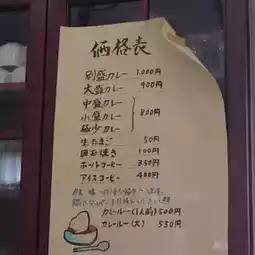 価格表
別盛カレー 1,000円
大盛カレー 900円
中盛カレー
小盛カレー 800円
極少カレー
生たまご 50円
目玉焼き 100円
ホットコーヒー 350円
アイスコーヒー 400円
カレールー(1人前) 500円
カレールー(大) 530円